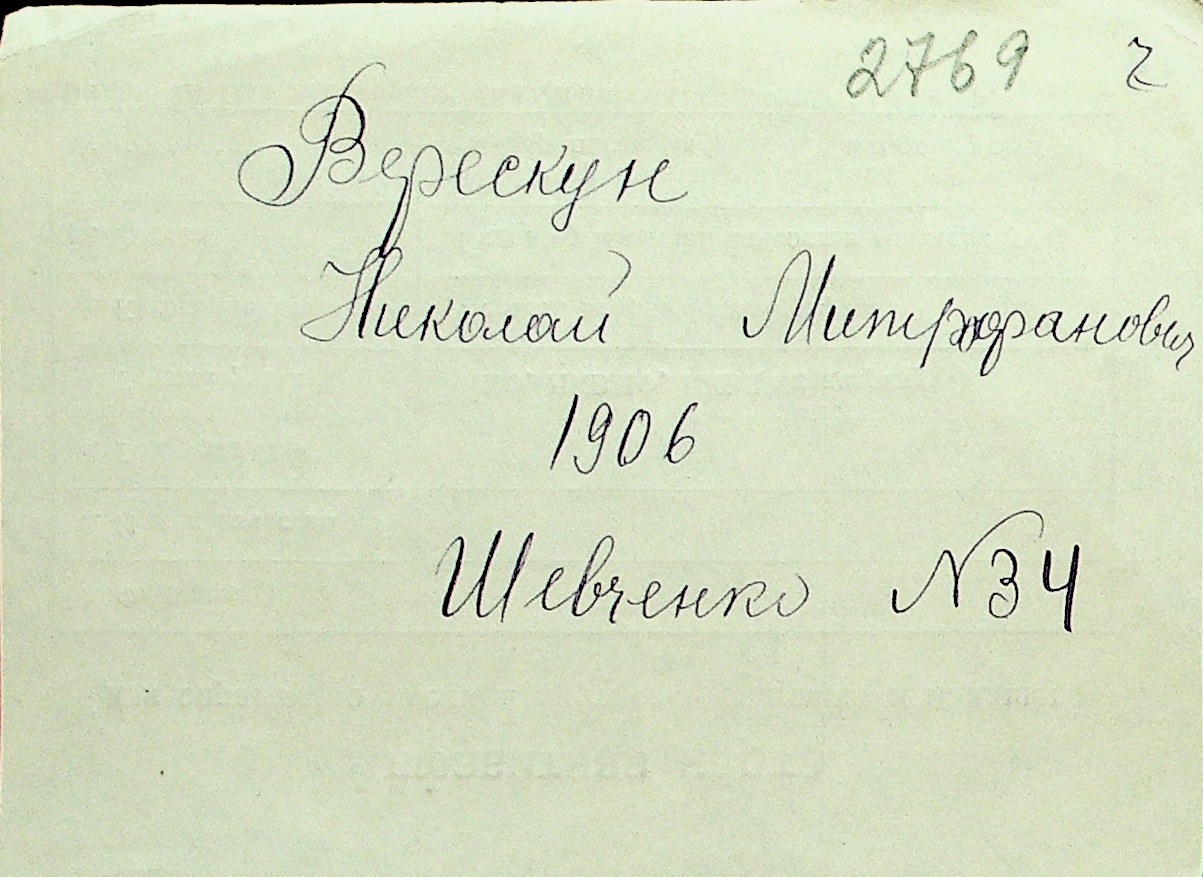 2769 ч
Верескун
Николай Митрофанович
1906
Шевченко №34